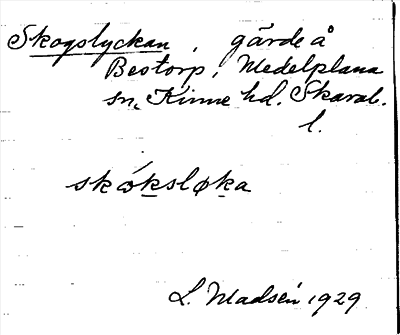 Skogslyckan, gärde å
Bestorp, Medelplana
sn, Kinne hd. Skarab.
l.
skóksløka
L. Madsén 1929